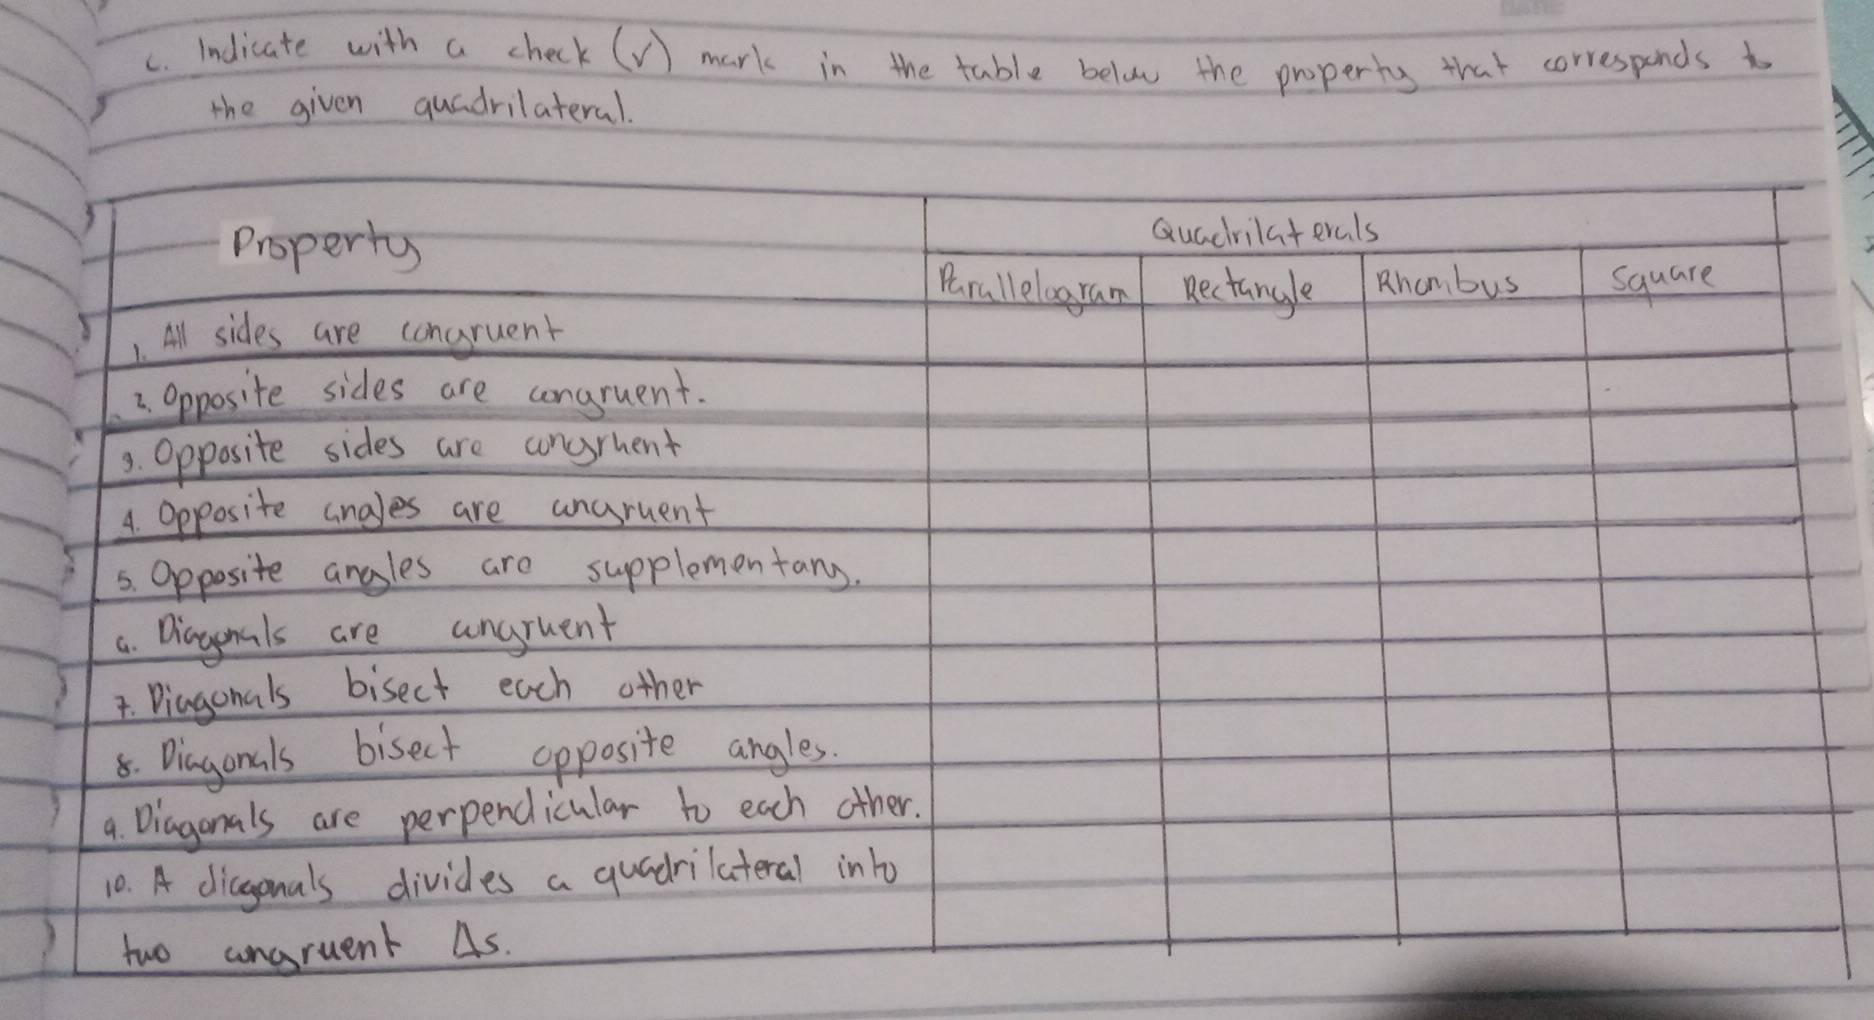 c. Indicate with a check (√) mark in the table below the property that corresponds to
the given quadrilateral.
Property
Quadrilaterals
Parallelogram Rectangle Rhombus Square
1. All sides are congruent
2. Opposite sides are congruent.
3. Opposite sides are congruent
4. Opposite angles are congruent
5. Opposite angles are supplementary.
6. Diagonals are congruent
7. Diagonals bisect each other
8. Diagonals bisect opposite angles.
9. Diagonals are perpendicular to each other.
10. A diagonals divides a quadrilateral into
two congruent Δs.